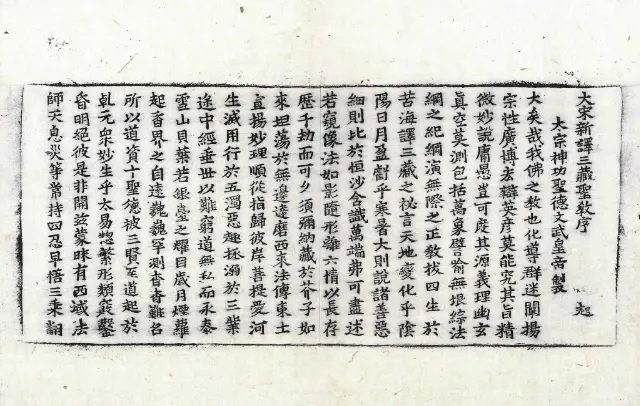 大宋新譯三藏聖教序
太宗神功聖德文武皇帝製 起
大矣哉我佛之教也化導群迷闡揚
宗性廣博宏辯英彥莫能究其旨精
微妙說庸愚豈可度其源義理幽玄
真空莫測包括萬象譬喻無垠綜法
網之紀綱演無際之正教拔四生於
苦海譯三藏之秘言天地變化乎陰
陽日月盈虧乎寒暑大則說諸善惡
細則比於恒沙含識萬端弗可盡述
若窺像法如影隨形離六情以長存
歷千劫而可久須彌納藏於芥子如
來坦蕩於無邊達磨西來法傳東土
宣揚妙理順從指歸彼岸菩提愛河
生滅用行於五濁惡趣拯溺於三業
途中經垂世以難窮道無私而永泰
雪山貝葉若銀臺之耀目歲月煙蘿
起香界之自遠巍巍罕測杳杳難名
所以道資十聖德被三賢至道起於
乹元衆妙生乎太易惣繫形類竅鑿
昏明絕彼是非開茲蒙昧有西域法
師天息災等常持四忍早悟三乘翻